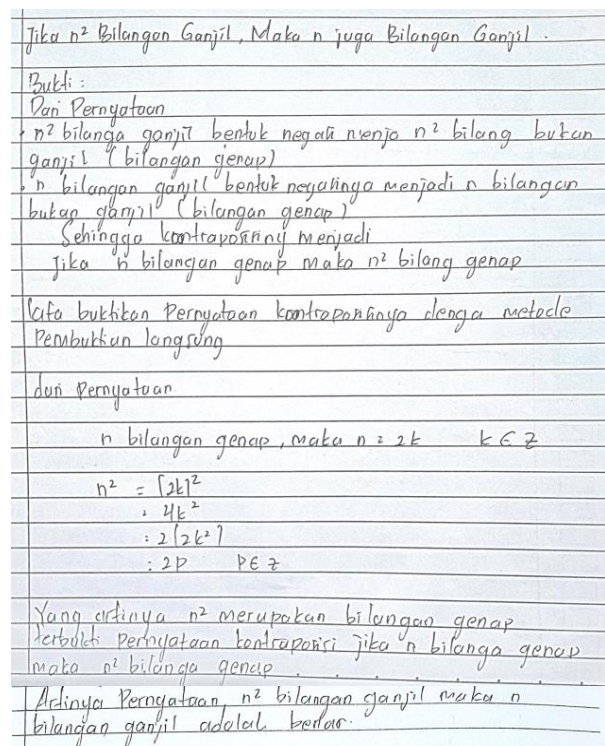 Jika n² Bilangan Ganjil, Maka n juga Bilangan Ganjil.
Bukti :
Dari Pernyataan
• n² bilanga ganjil bentuk negati menja n² bilang bukan
ganjil (bilangan genap)
• n bilangan ganjil bentuk negatinga menjadi n bilangan
bukan ganjil (bilangan genap)
Sehingga kontraposisiny menjadi
Jika n bilangan genap maka n² bilang genap
kita buktikan Pernyataan kontraposisinya denga metode
Pembuktian langsung
dari Pernyataan
n bilangan genap, maka n = 2k k ∈ z
n² = (2k)²
: 4k²
: 2(2k²)
: 2p P ∈ z
Yang artinya n² merupakan bilangan genap
terbukti pernyataan kontraposisi jika n bilanga genap
maka n² bilanga genap
Artinya Pernyataan, n² bilangan ganjil maka n
bilangan ganjil adalal benar.